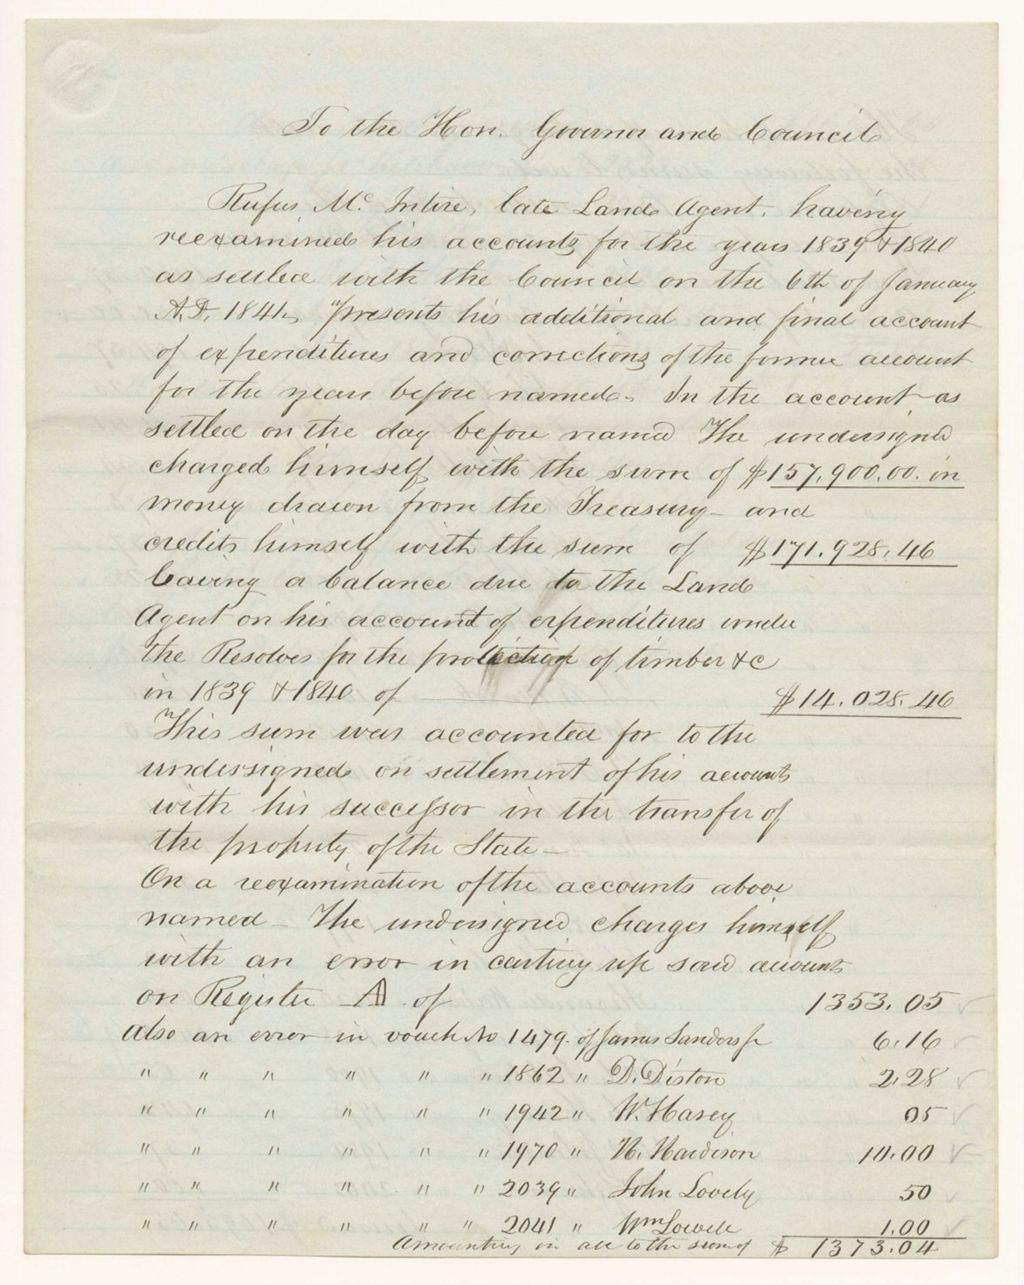 To the Hon. Governor and Council
Rufus Mc Intire, late Land Agent, having
reexamined his accounts for the years 1839 & 1840
as settled with the Council on the 6th of January
A.D. 1841, presents his additional and final account
of expenditures and corrections of the former account
for the years before named. In the account as
settled on the day before named The undersigned
charged himself with the sum of $157,900.00. in
money drawn from the Treasury - and
credits himself with the sum of $171.928.46
leaving a balance due to the Land
Agent on his account of expenditures under
the Resolves for the protection of timber &c
in 1839 & 1840 of $14.028.46
This sum was accounted for to the
undersigned on settlement of his accounts
with his successor in the transfer of
the property of the State -
On a reexamination of the accounts above
named - The undersigned charges himself
with an error in casting up said accounts
on Register A of 1353.05
also an error in vouch No 1479. of James Sanders jr 6.16
" " " " " " 1862 " D. Diston 2.28
" " " " " " 1942 " W. Hasey 05
" " " " " " 1970 " N. Hardison 10.00
" " " " " " 2039 " John Lovely 50
" " " " " " 2041 " Wm Lowell 1.00
Amounting in all to the sum of $ 1373.04